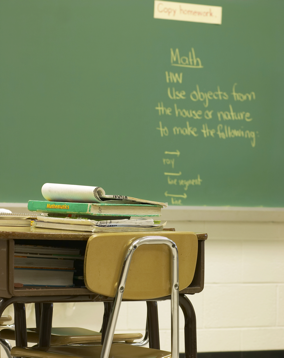 Copy homework.
Math
HW
Use objects from
the house or nature
to make the following:
ray
line segment
line